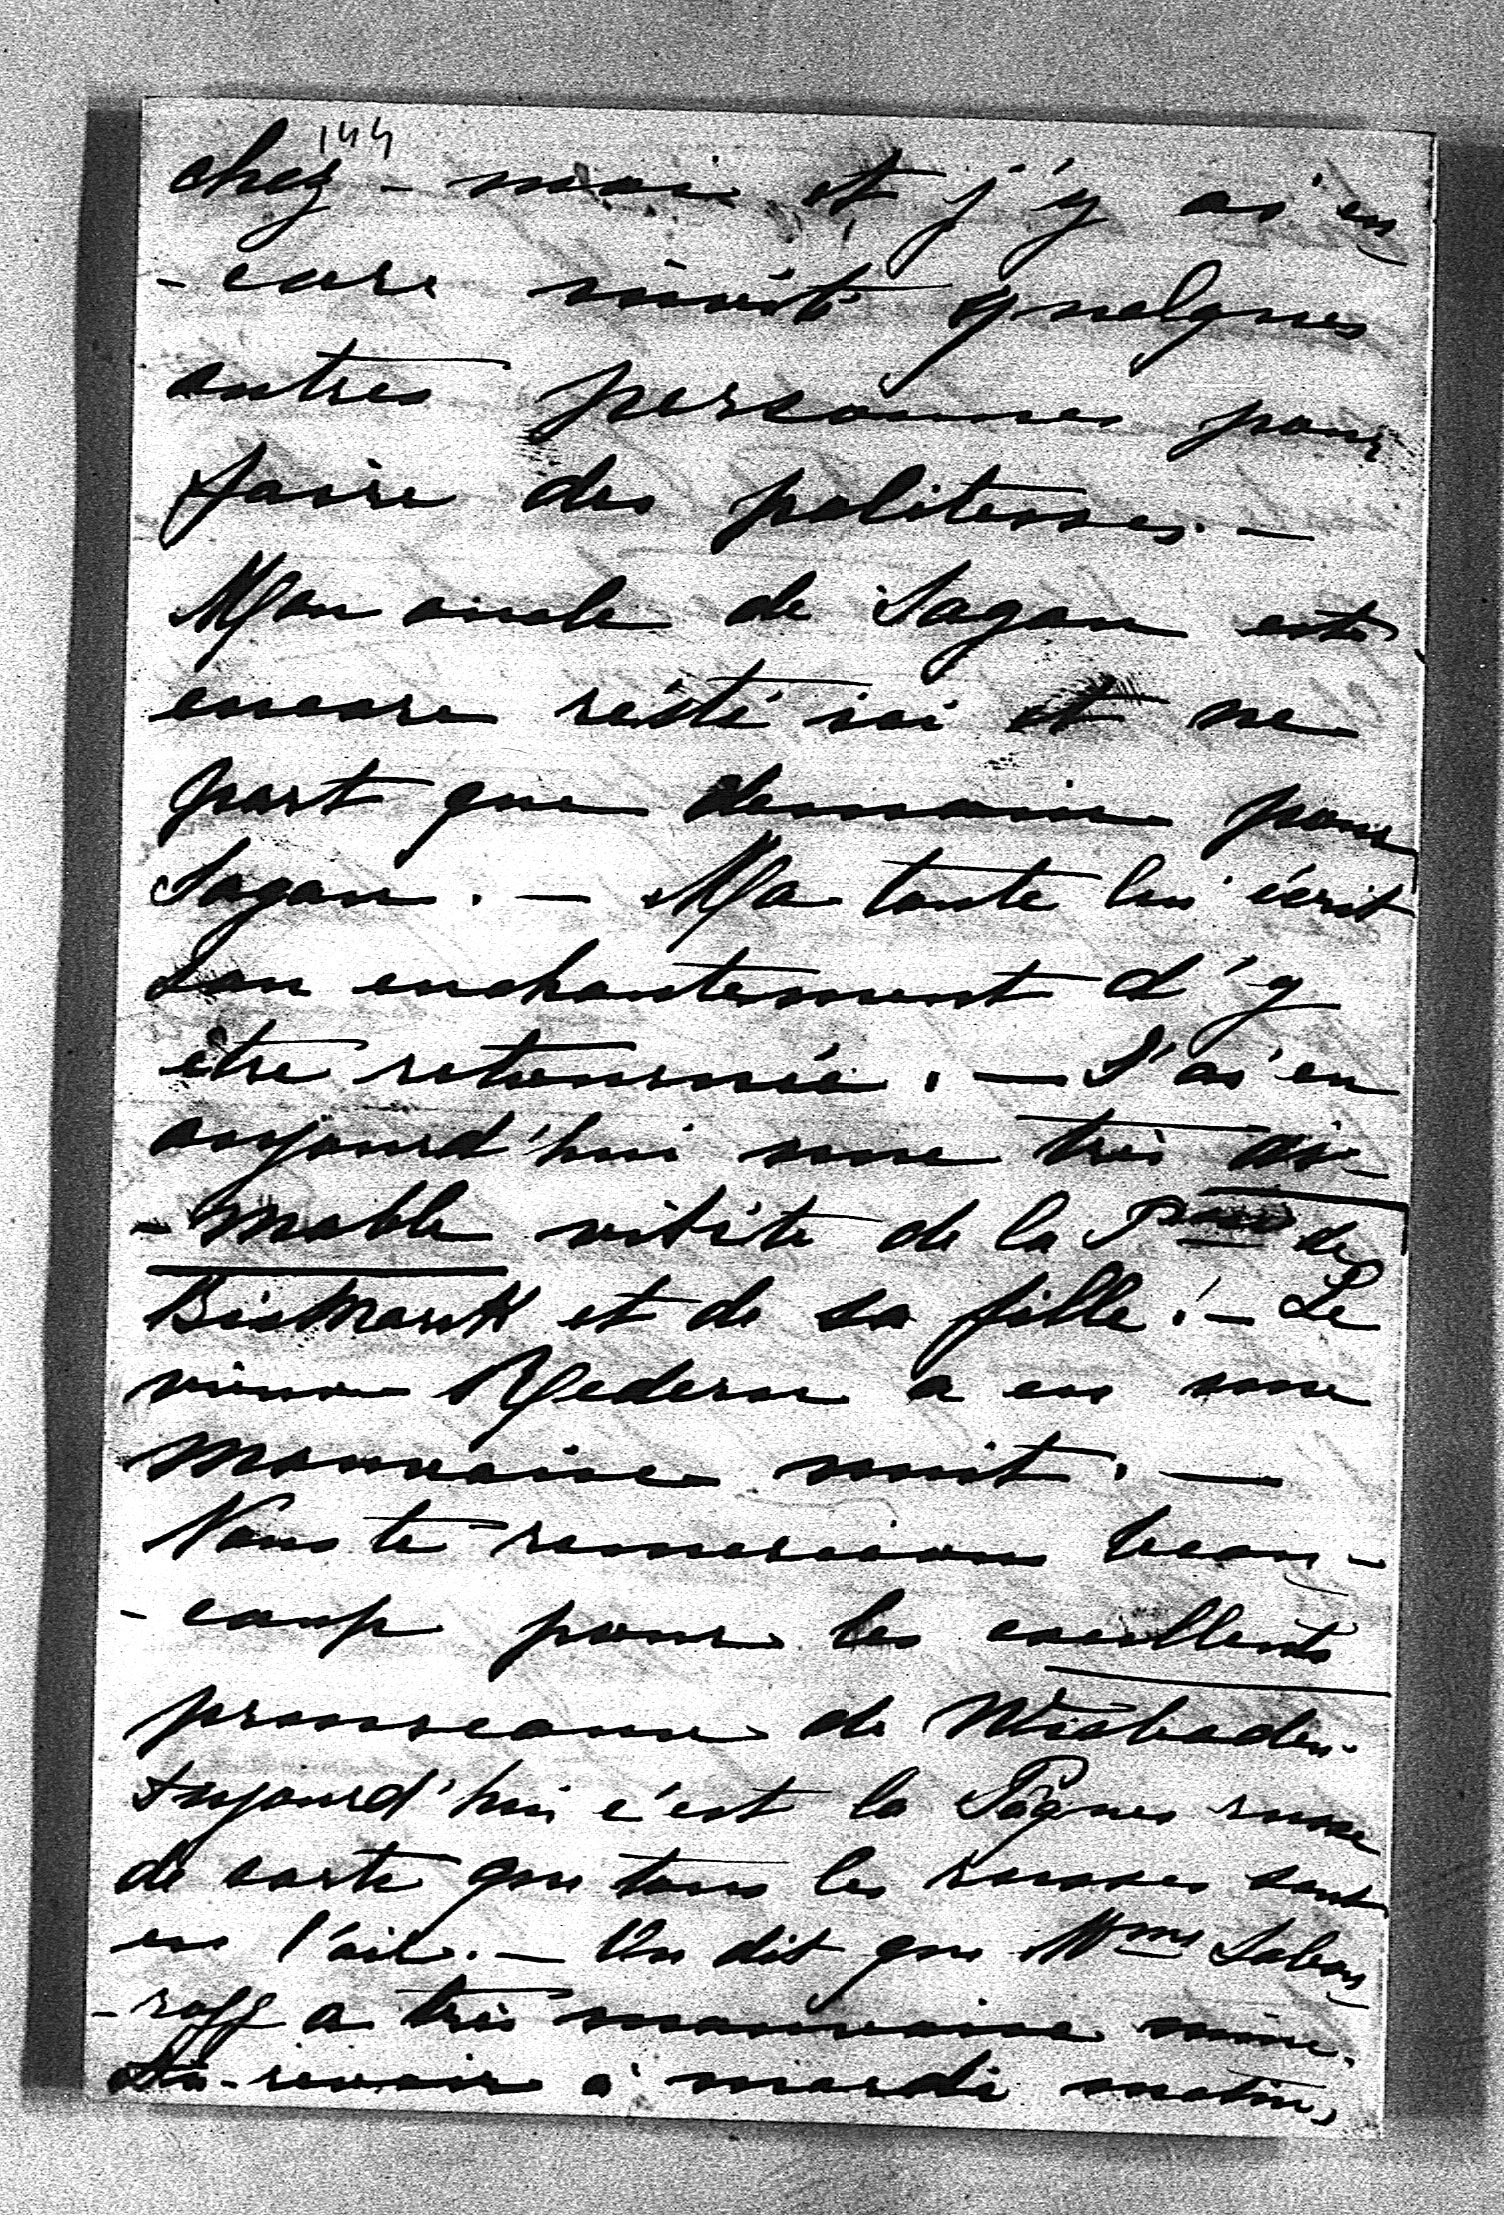 144
chez-moi et j'y ai en
-core invité quelques
autres personnes pour
faire des politesses. —
Mon oncle de Sagan est
encore resté ici et ne
part que demain pour
Sagan. — Ma tante lui écrit
son enchantement d'y
être retournée. — J'ai eu
aujourd'hui une très ai-
-mable visite de la Psse de
Bismarck et de sa fille! — Le
vieux Redern a eu une
mauvaise nuit. —
Nous te remercions beau-
-coup pour les excellents
pruneaux de Wiesbaden.
Aujourd'hui c'est la Pâques russe
de sorte que tous les russes sont
en l'air. — On dit que Mme Sabou
-roff a très mauvaise mine.
Au-revoir à mardi matin,